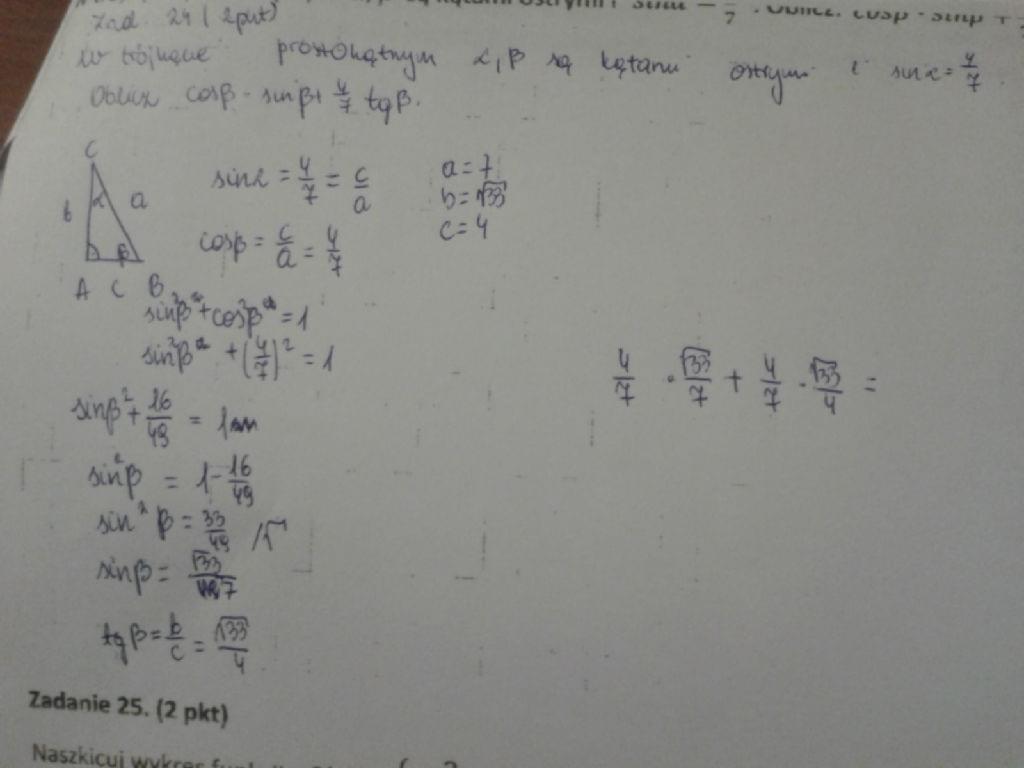 są kątami ostrymi i sinα = 4/7. Oblicz: cosβ · sinβ +
Zad. 24 (2pkt)
W trójkącie prostokątnym α, β są kątami ostrymi i sinα = 4/7.
Oblicz cosβ · sinβ + 4/7 tgβ.
C
b α a
β
A C B
sinα = 4/7 = c/a
cosβ = c/a = 4/7
a = 7
b = √33
c = 4
sin²β + cos²β = 1
sin²β + (4/7)² = 1
sinβ² + 16/49 = 1
sin²β = 1 - 16/49
sin²β = 33/49 /√
sinβ = √33/7
tgβ = b/c = √33/4
4/7 · √33/7 + 4/7 · √33/4 =
Zadanie 25. (2 pkt)
Naszkicuj wykres